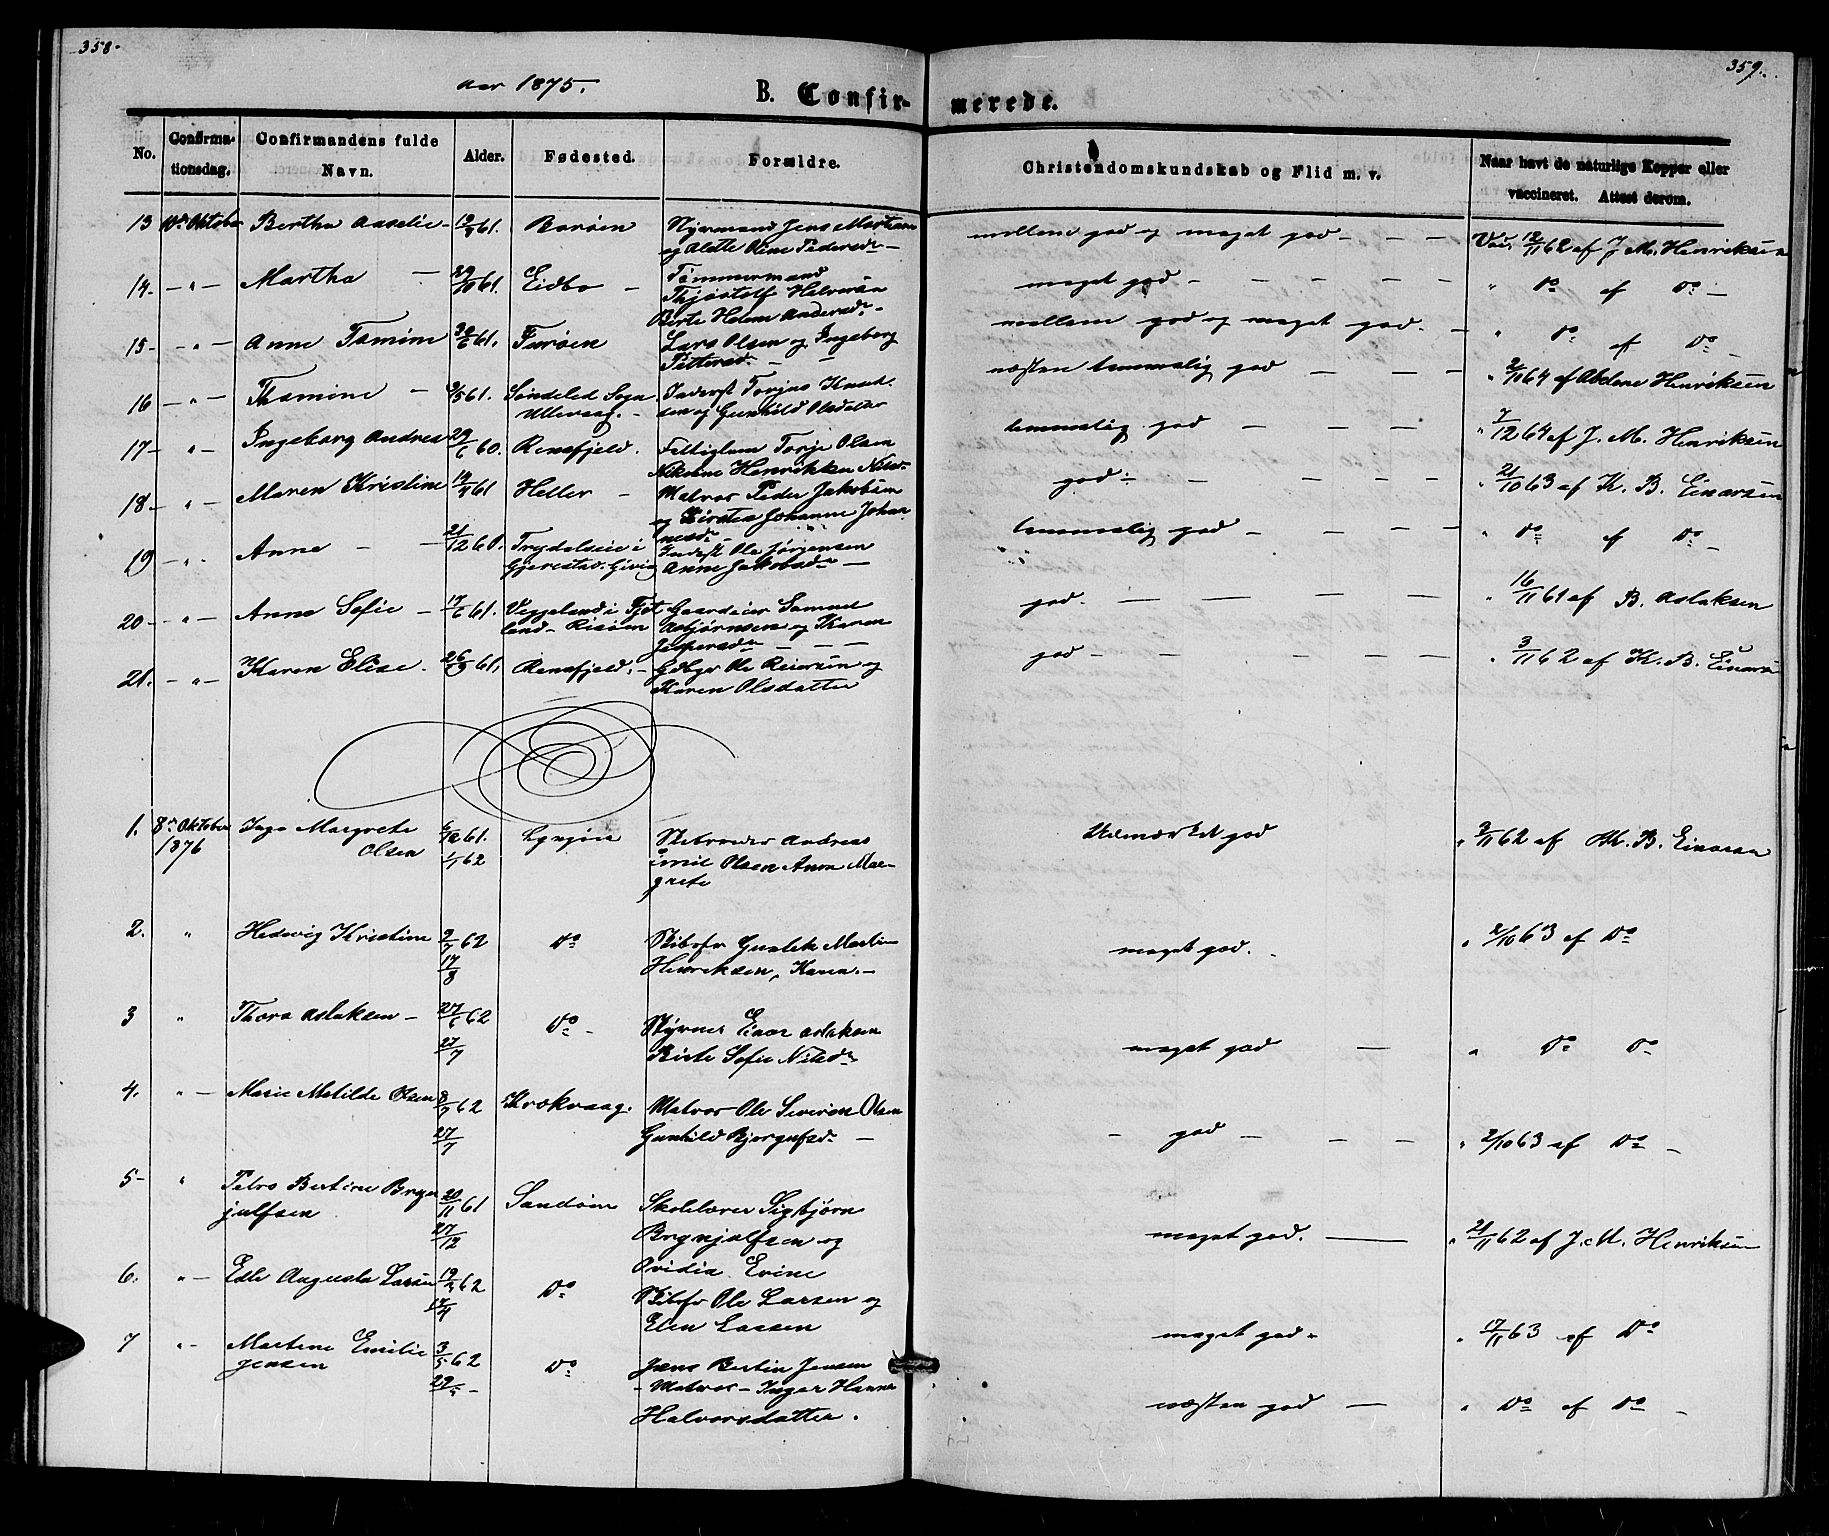 358.
359.
aar 1875.
B. Confir-
merede.
No.
Confirma-
tionsdag.
Confirmandens fulde
Navn.
Alder.
Fødested.
Forældre.
Christendomskundskab og Flid m. v.
Naar havt de naturlige Kopper eller
vaccineret. Attest derom.
13 Oktober Bertha Aaselie 61. Borøen
Styrmand Jens Martin
og Alette Oline Pedersdr
mellem god og maget god
Vac. 62 af J. M. Henriksen
14 - " - Martha 61. Eidbo
Tømmermand
Thjøstolf Halvorsen
Berte Helene Andersdr
maget god
" Do af Do
15 - " - Anne Tomine 61. Furøen
Lars Olsen og Ingeborg
Pettersd.
mellem god og maget god.
" Do af Do
16 - " - Thomine 9/5 61. Søndeled Sogn
Ullevaag.
Inderst Torjus Knud-
sen og Gunhild Olsdatter
næsten temmelig god
" 2/10 64 af Abelone Henriksen
17 - " - Ingeborg Andrea 29/6 60. Rensfjeld.
Torje Olsen
Nikoline Henrikke Nilsd
temmelig god
" 7/12 64 af J. M. Henriksen
18 - " Maren Kristine 61 Heller
Matros Peder Jakobsen
og Kirsten Johanne Johan
nesd
god
" 21/10 63 af K. B. Einarsen
19 - " - Anne 21/12 60. i
Gjerestad.
Inderst Ole Jørgensen
Anne Jakobsd
temmelig god
" Do af Do
20 - " - Anne Sofie 17/6 61. Veggeland i
land - Risøen
Gaardeier Samuel
Asbjørnsen og Karen
Jespersd
god.
" 16/11 61 af B. Aslaksen
21. - " - Karen Elise. 26/9 61. Rensfjeld.
Gdbgr Ole Reiersen og
Karen Olsdatter
god
" 3/11 62 af K. B. Einarsen
1. 8de Oktober
1876
Inga Margrete
Olsen
61.
1/1 62
Lyngøen
Skibsreder Andreas
Emil Olsen Anna Mar-
grete
Udmærket god
" 3/11 62 af K. B. Einarsen
2. " Hedevig Kristine 9/7 62
17/8
Do
Skibsfr Gunlek Martin
Henriksen, Karen
maget god.
" 2/10 63 af Do
3 " Thora Aslaksen 27/6 62
27/7
Do
Styrmd Einar Aslaksen
Berte Sofie Nilsd
maget god
" Do Do
4. " Marie Matilde Olsen 62
27/7
Krokvaag.
Matros Ole Severin Olsen
Gunhild Bjorgufsd
god
" 2/10 63 af Do
5 " Petra Bertine Bryn
julfsen
20/11 61
27/12
Sandøen
Skolelærer Sigbjørn
Brynjulfsen og
Ovidia Evine
maget god.
" 21/11 62 af J. M. Henriksen
6. " Edle Augusta Larsen 62
17/4
Do
Skibsfr Ole Larsen og
Elen Larsen
maget god
" 17/11 63 af Do
7 " Martene Emilie
Jensen
3/5 62
29/
Do
Jens Bertin Jensen
- Matros - Inger Hanne
Halvorsdatter.
næsten god
" Do af Do